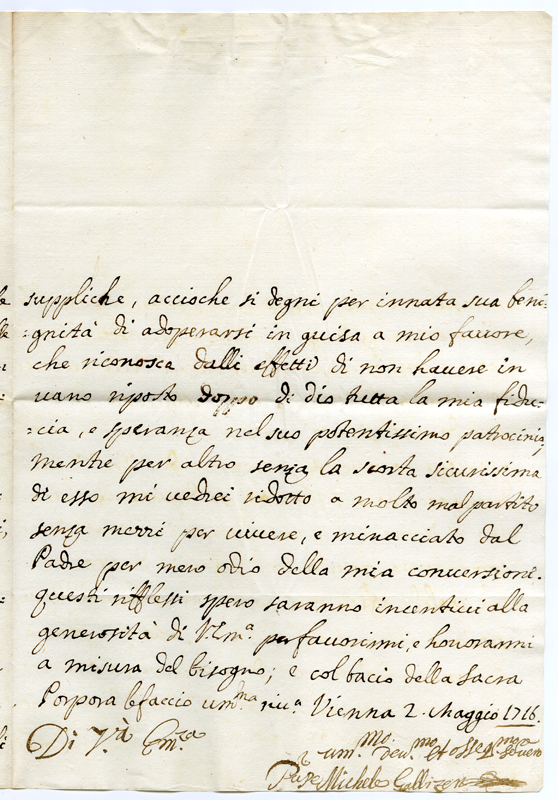 suppliche, accioche si degni per innata sua beni-
:gnità di adoperarsi in guisa a mio favore,
che riconosca dalli effetti di non havere in
vano riposto doppo di Dio tutta la mia fidu-
:cia, e speranza nel suo potentissimo patrocinio,
mentre per altro senza la scorta sicurissima
di esso mi vedrei ridotto a molto mal partito
senza mezzi per vivere, e minacciato dal
Padre per mero odio della mia conversione.
questi riflessi spero saranno incentivi alla
generosità di V. Em.ᵃ per favorirmi, e honorarmi
a misura del bisogno; e col bacio della Sacra
Porpora le faccio um.ᵐᵃ riv.ᵃ Vienna 2. Maggio 1716.
Di V.ʳᵃ Em.ᶻᵃ
um.ᵐᵒ dev.ᵐᵒ et osseq.ᵐᵒ
Michele